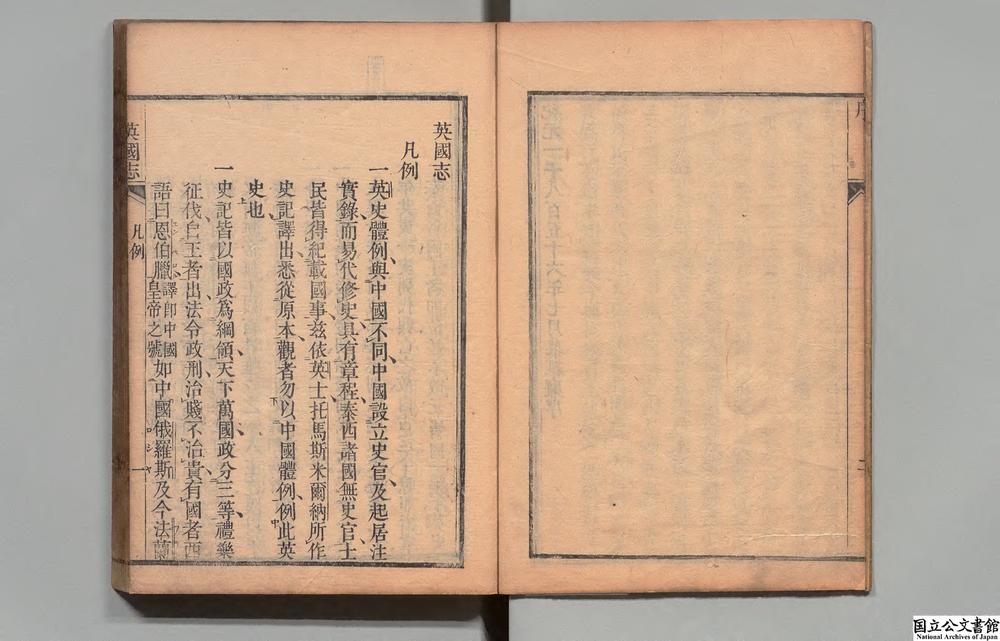 序
二
英國志
凡例
一英史體例與中國不同中國設立史官及起居注
實錄而易代修史具有章程泰西諸國無史官士
民皆得紀載國事茲依英士托馬斯米爾納所作
史記譯出悉從原本觀者勿以中國體例例此英
史也
一史記皆以國政爲綱領天下萬國政分三等禮樂
征伐自王者出法令政刑治賤不治貴有國者西
語曰恩伯臘譯卽中國皇帝之號如中國俄羅斯及今法蘭
英國志
凡例
一
国立公文書館
National Archives of Japan